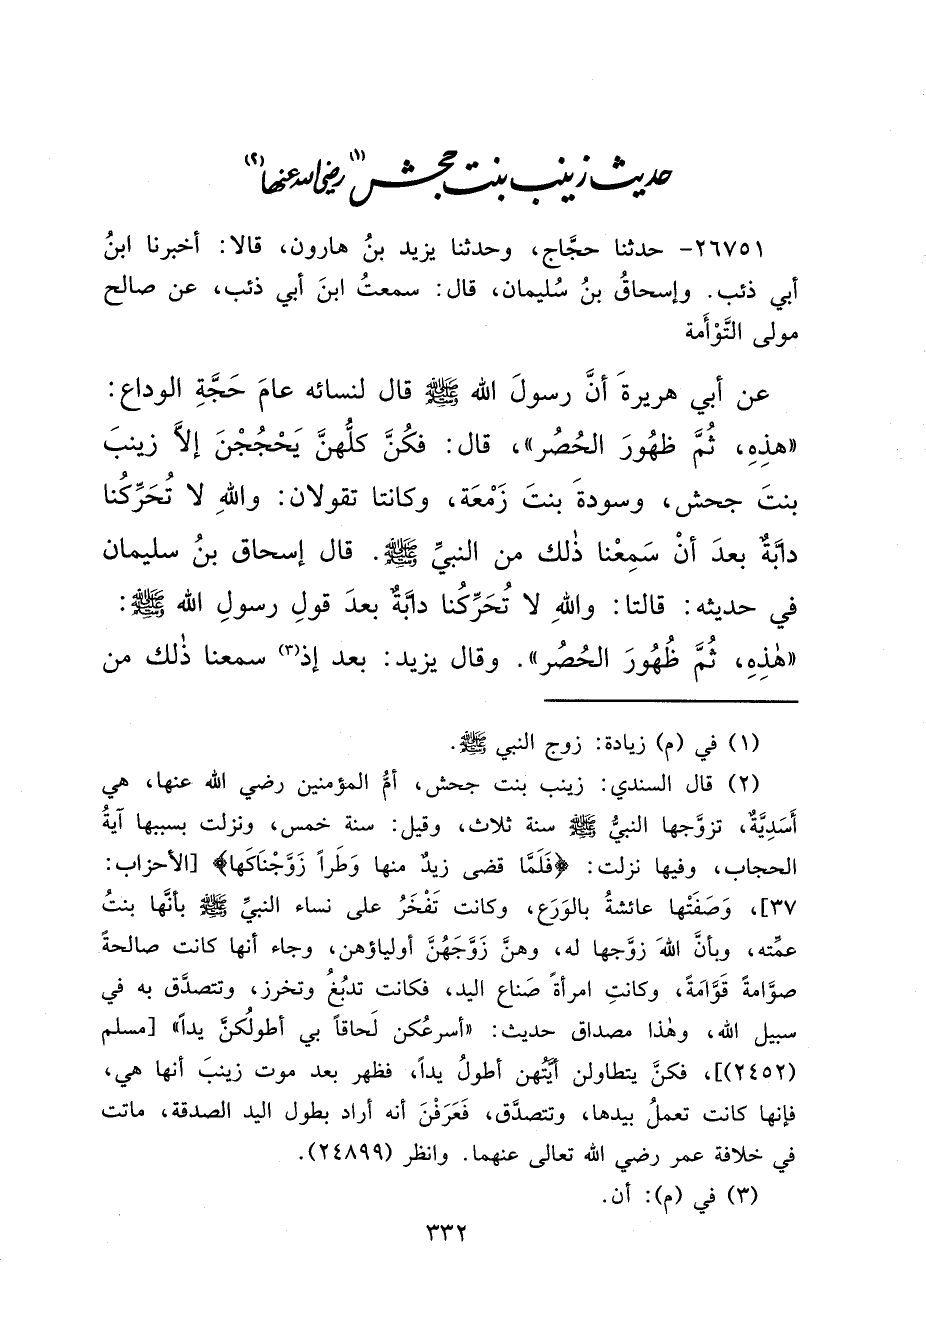 حديث زينب بنت جحش(١) رضي الله عنها(٢)
٢٦٧٥١- حدثنا حجَّاج، وحدثنا يزيد بنُ هارون، قالا: أخبرنا ابنُ
أبي ذئب. وإسحاقُ بنُ سُليمان، قال: سمعتُ ابنَ أبي ذئب، عن صالح
مولى التَّوْأَمة
عن أبي هريرةَ أنَّ رسولَ الله ﷺ قال لنسائه عامَ حَجَّةِ الوداع:
«هذِهِ، ثُمَّ ظهُورَ الحُصُر»، قال: فكُنَّ كلُّهنَّ يَحْجُجْنَ إلاَّ زينبَ
بنتَ جحش، وسودةَ بنتَ زَمْعَة، وكانتا تقولان: واللهِ لا تُحَرِّكُنا
دابَّةٌ بعدَ أنْ سَمِعْنا ذٰلك من النبيِّ ﷺ. قال إسحاق بنُ سليمان
في حديثه: قالتا: واللهِ لا تُحَرِّكُنا دابَّةٌ بعدَ قولِ رسولِ الله ﷺ:
«هٰذِهِ، ثُمَّ ظُهُورَ الحُصُر». وقال يزيد: بعد إذ(٣) سمعنا ذٰلك من
(١) في (م) زيادة: زوج النبي ﷺ.
(٢) قال السندي: زينب بنت جحش، أمُّ المؤمنين رضي الله عنها، هي
أَسَدِيَّةٌ، تزوَّجها النبيُّ ﷺ سنة ثلاث، وقيل: سنة خمس، ونزلت بسببها آيةُ
الحجاب، وفيها نزلت: ﴿فَلَمَّا قضى زيدٌ منها وَطَراً زَوَّجْنَاكَها﴾ [الأحزاب:
٣٧]، وَصَفَتْها عائشةُ بالوَرَع، وكانت تَفْخَرُ على نساء النبيِّ ﷺ بأنَّها بنتُ
عمِّته، وبأنَّ اللهَ زوَّجها له، وهنَّ زَوَّجَهُنَّ أولياؤهن، وجاء أنها كانت صالحةً
صوَّامةً قَوَّامَةً، وكانتِ امرأةً صَناع اليد، فكانت تدبُغُ وتخرز، وتتصدَّق به في
سبيل الله، وهٰذا مصداق حديث: «أسرعُكن لَحاقاً بي أطولُكنَّ يداً» [مسلم
(٢٤٥٢)]، فكنَّ يتطاولن أيَّتُهن أطولُ يداً، فظهر بعد موت زينبَ أنها هي،
فإنها كانت تعملُ بيدها، وتتصدَّق، فَعَرَفْنَ أنه أراد بطول اليد الصدقة، ماتت
في خلافة عمر رضي الله تعالى عنهما. وانظر (٢٤٨٩٩).
(٣) في (م): أن.
٣٣٢